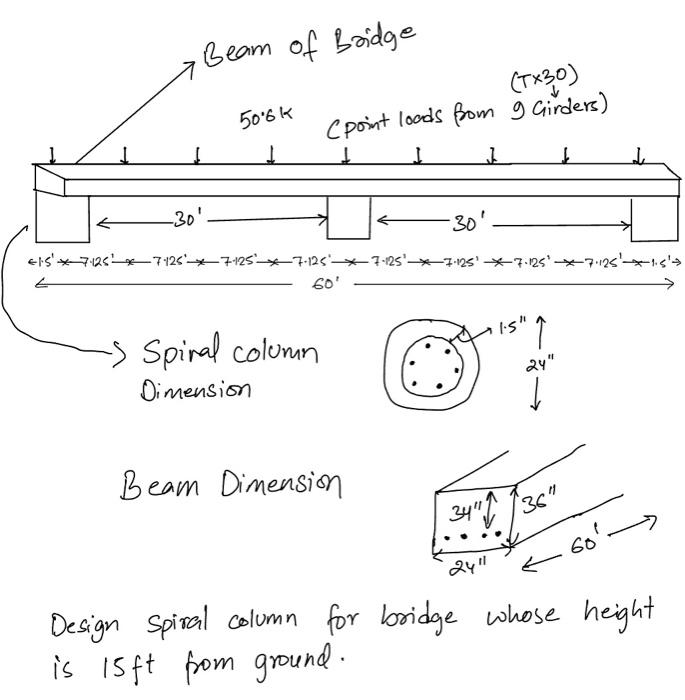 Beam of Bridge
(Tx30)
50.6k (point loads from 9 Girders)
30' 30'
1.5' 7.125' 7.125' 7.125' 7.125' 7.125' 7.125' 7.125' 7.125' 1.5'
60'
Spiral column
Dimension
1.5"
24"
Beam Dimension
34" 36"
24" 60'
Design Spiral column for bridge whose height
is 15ft from ground.